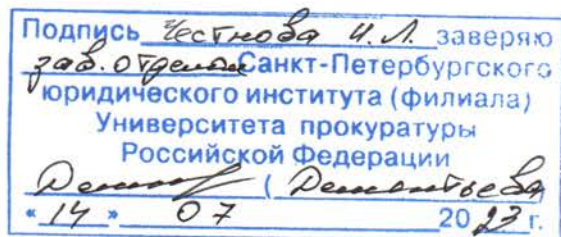 Подпись Честнова И.Л. заверяю
зав. отделом Санкт-Петербургского
юридического института (филиала)
Университета прокуратуры
Российской Федерации
( Дементьева )
« 14 » 07 2023 г.